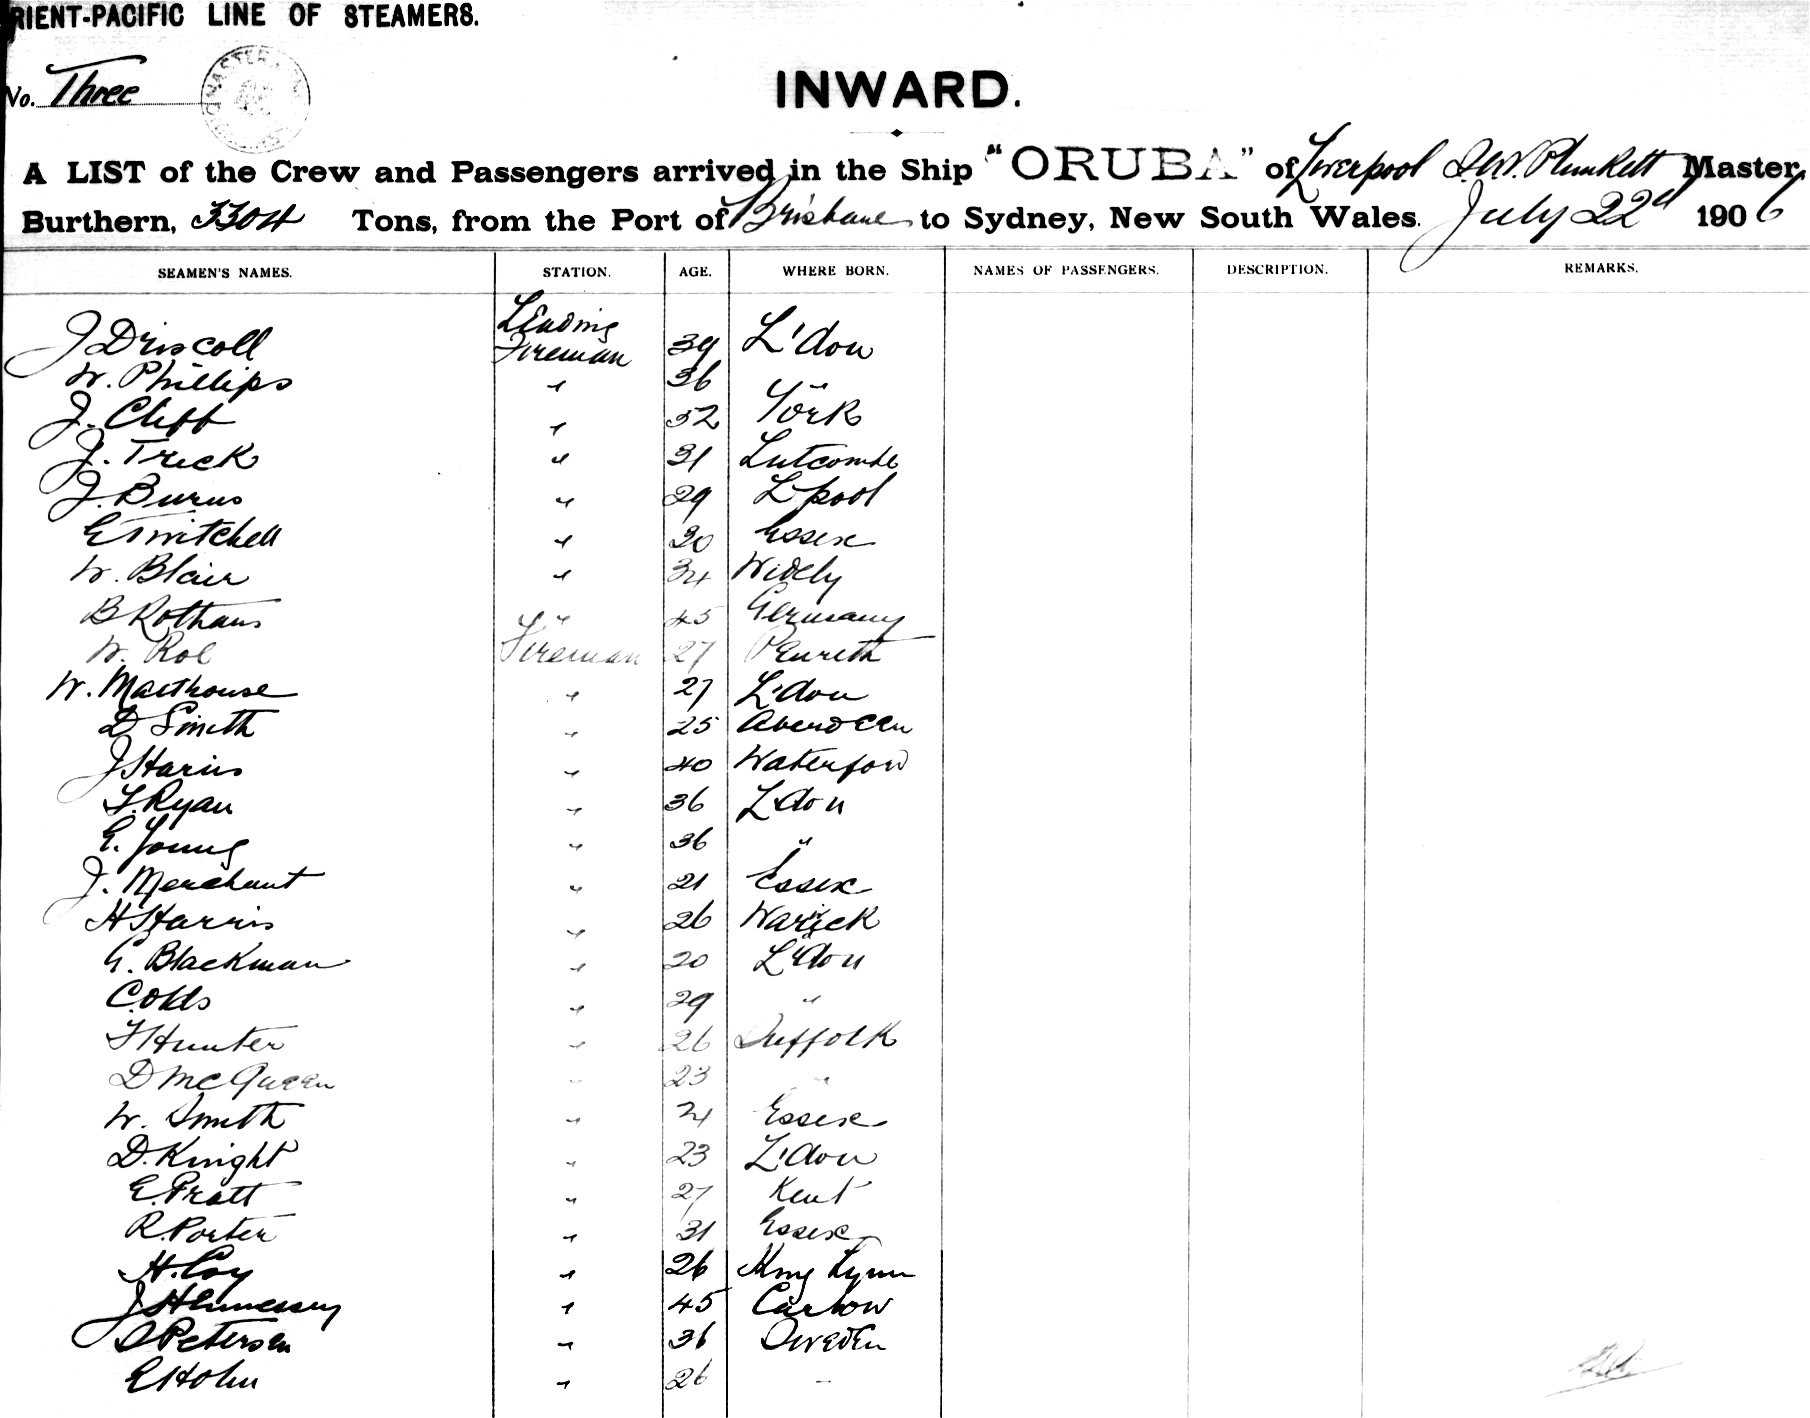 RIENT-PACIFIC LINE OF STEAMERS.
No. Three
INWARD.
A LIST of the Crew and Passengers arrived in the Ship "ORUBA" of Liverpool Plunkett Master,
Burthern, 3304 Tons, from the Port of Brisbane to Sydney, New South Wales. July 22d 1906
SEAMEN'S NAMES. STATION. AGE. WHERE BORN. NAMES OF PASSENGERS. DESCRIPTION. REMARKS.
J Driscoll Leading Fireman 39 L'don
W. Phillips " 36 "
J. Cliff " 32 York
J. Trick " 31 Lutcombe
J. Burns " 29 L'pool
E Twitchell " 30 Essex
W. Blair " 34 Widely
B Rothaus " 45 Germany
W. Roe Fireman 27 Penrith
W. Malthouse " 27 L'don
D Smith " 25 Aberdeen
J Harris " 40 Waterford
T. Ryan " 36 L'don
E. Young " 36 "
J. Merchant " 21 Essex
H Harris " 26 Warick
G. Blackman " 20 L'don
C. Olds " 29 "
F Hunter " 26 Suffolk
D McQueen " 23 "
W. Smith " 21 Essex
D. Knight " 23 L'don
E. Pratt " 27 Kent
R. Porter " 31 Essex
H. Coy " 26 King Lynn
J Hennessy " 45 Carlow
Petersen " 36 Sweden
E Hohn " 26 "